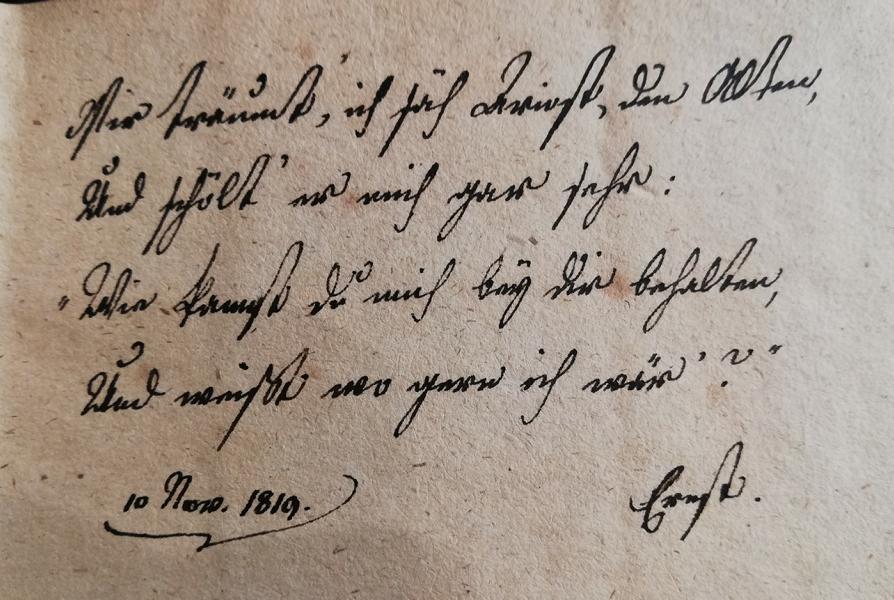 Mir träumt', ich säh Ariost, den Alten,
Und schölt' er mich gar sehr:
"Wie kannst du mich beÿ dir behalten,
Und weißt wo gern ich wär'?"
10 Nov. 1819. Ernst.